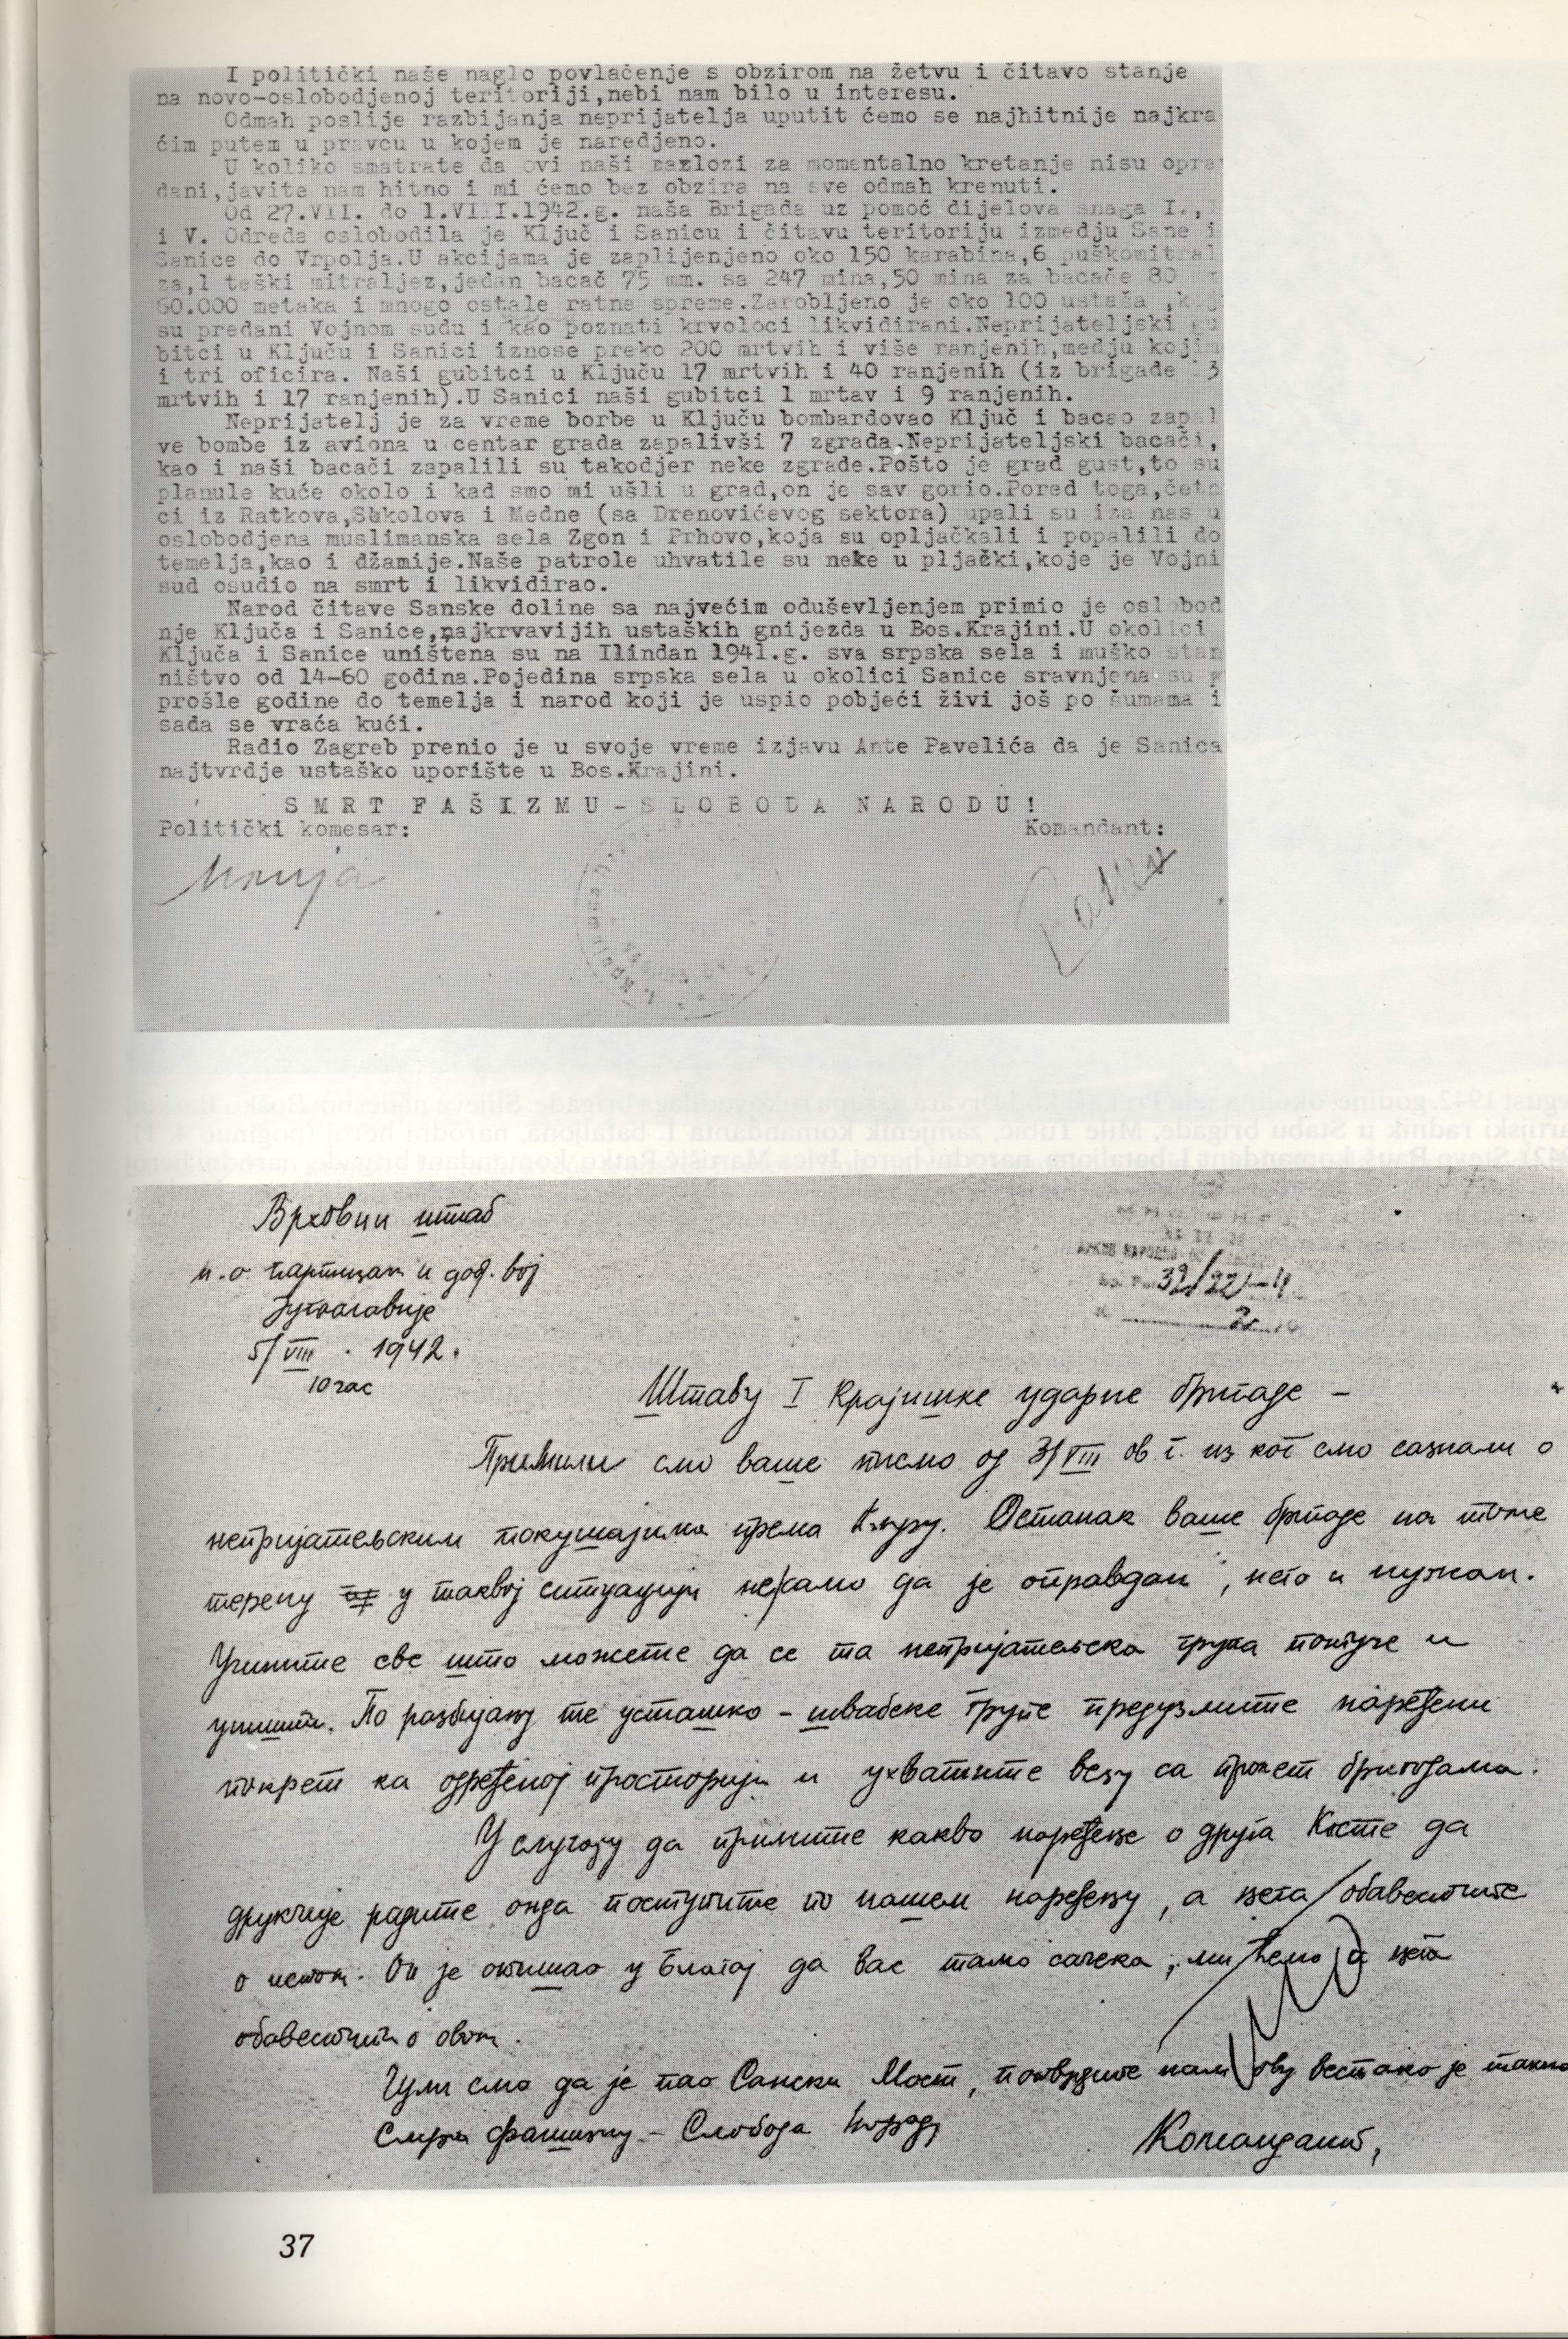 I politički naše naglo povlačenje s obzirom na žetvu i čitavo stanje
na novo-oslobodjenoj teritoriji,nebi nam bilo u interesu.
Odmah poslije razbijanja neprijatelja uputit ćemo se najhitnije najkra
ćim putem u pravcu u kojem je naredjeno.
U koliko smatrate da ovi naši razlozi za momentalno kretanje nisu oprav
dani,javite nam hitno i mi ćemo bez obzira na sve odmah krenuti.
Od 27.VII. do 1.VIII.1942.g. naša Brigada uz pomoć dijelova snaga I.,
i V. Odreda oslobodila je Ključ i Sanicu i čitavu teritoriju izmedju Sane i
Sanice do Vrpolja.U akcijama je zaplijenjeno oko 150 karabina,6 puškomitral
za,1 teški mitraljez,jedan bacač 75 mm. sa 247 mina,50 mina za bacače 80
60.000 metaka i mnogo ostale ratne spreme.Zarobljeno je oko 100 ustaša ,koj
su predani Vojnom sudu i kao poznati krvoloci likvidirani.Neprijateljski gu
bitci u Ključu i Sanici iznose preko 200 mrtvih i više ranjenih,medju kojim
i tri oficira. Naši gubitci u Ključu 17 mrtvih i 40 ranjenih (iz brigade 13
mrtvih i 17 ranjenih).U Sanici naši gubitci 1 mrtav i 9 ranjenih.
Neprijatelj je za vreme borbe u Ključu bombardovao Ključ i bacao zapal
ve bombe iz aviona u centar grada zapalivši 7 zgrada.Neprijateljski bacači,
kao i naši bacači zapalili su takodjer neke zgrade.Pošto je grad gust,to su
planule kuće okolo i kad smo mi ušli u grad,on je sav gorio.Pored toga,četn
ci iz Ratkova,Sokolova i Medne (sa Drenovićevog sektora) upali su iza nas u
oslobodjena muslimanska sela Zgon i Prhovo,koja su opljačkali i popalili do
temelja,kao i džamije.Naše patrole uhvatile su neke u pljački,koje je Vojni
sud osudio na smrt i likvidirao.
Narod čitave Sanske doline sa najvećim oduševljenjem primio je oslobod
nje Ključa i Sanice,najkrvavijih ustaških gnijezda u Bos.Krajini.U okolici
Ključa i Sanice uništena su na Ilindan 1941.g. sva srpska sela i muško stan
ništvo od 14-60 godina.Pojedina srpska sela u okolici Sanice sravnjena su
prošle godine do temelja i narod koji je uspio pobjeći živi još po šumama i
sada se vraća kući.
Radio Zagreb prenio je u svoje vreme izjavu Ante Pavelića da je Sanica
najtvrdje ustaško uporište u Bos.Krajini.
SMRT FAŠIZMU-SLOBODA NARODU!
Politički komesar: Komandant:
Врховни штаб
н.о. партизан. и доб. вој
Југославије
5/VIII . 1942.
10 час
39/22-4
2
Штабу I Крајишке ударне бригаде –
Примили смо ваше писмо од 3/VIII ов. г. из ког смо сазнали о
непријатељским покушајима према Кључу. Останак ваше бригаде на томе
терену у таквој ситуацији не само да је оправдан, него и нужан.
Учините све што можете да се та непријатељска група потуче и
уништи. По разбијању те усташко – швабске групе предузмите наређени
покрет ка одређеној просторији и ухватите везу са пролет бригадама.
У случају да примите какво наређење о друга Косте да
друкчије радите онда поступите по нашем наређењу, а њега обавестите
о истом. Он је отишао у Благај да вас тамо сачека, ми ћемо и њега
обавестити о овом.
Чули смо да је пао Сански Мост, потврдите нам ову вест ако је тачно
Смрт фашизму – Слобода народу
Командант,
37